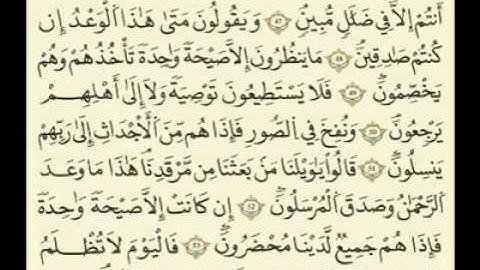 أَنتُمْ إِلَّا فِي ضَلَٰلٍ مُّبِينٍ ٤٧ وَيَقُولُونَ مَتَىٰ هَٰذَا ٱلْوَعْدُ إِن
كُنتُمْ صَٰدِقِينَ ٤٨ مَا يَنظُرُونَ إِلَّا صَيْحَةً وَٰحِدَةً تَأْخُذُهُمْ وَهُمْ
يَخِصِّمُونَ ٤٩ فَلَا يَسْتَطِيعُونَ تَوْصِيَةً وَلَآ إِلَىٰٓ أَهْلِهِمْ
يَرْجِعُونَ ٥٠ وَنُفِخَ فِي ٱلصُّورِ فَإِذَا هُم مِّنَ ٱلْأَجْدَاثِ إِلَىٰ رَبِّهِمْ
يَنسِلُونَ ٥١ قَالُوا۟ يَٰوَيْلَنَا مَنۢ بَعَثَنَا مِن مَّرْقَدِنَا ۗ هَٰذَا مَا وَعَدَ
ٱلرَّحْمَٰنُ وَصَدَقَ ٱلْمُرْسَلُونَ ٥٢ إِن كَانَتْ إِلَّا صَيْحَةً وَٰحِدَةً
فَإِذَا هُمْ جَمِيعٌ لَّدَيْنَا مُحْضَرُونَ ٥٣ فَٱلْيَوْمَ لَا تُظْلَمُ